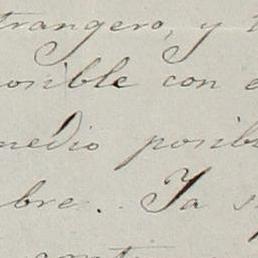 trangero, y
posible con
medio posibl
bre. Ya